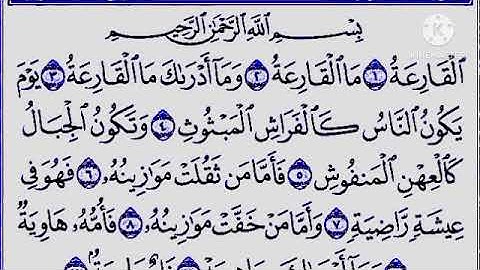 بِسْمِ ٱللَّهِ ٱلرَّحْمَٰنِ ٱلرَّحِيمِ
ٱلْقَارِعَةُ ١ مَا ٱلْقَارِعَةُ ٢ وَمَآ أَدْرَىٰكَ مَا ٱلْقَارِعَةُ ٣ يَوْمَ
يَكُونُ ٱلنَّاسُ كَٱلْفَرَاشِ ٱلْمَبْثُوثِ ٤ وَتَكُونُ ٱلْجِبَالُ
كَٱلْعِهْنِ ٱلْمَنفُوشِ ٥ فَأَمَّا مَن ثَقُلَتْ مَوَٰزِينُهُۥ ٦ فَهُوَ فِي
عِيشَةٍ رَّاضِيَةٍ ٧ وَأَمَّا مَنْ خَفَّتْ مَوَٰزِينُهُۥ ٨ فَأُمُّهُۥ هَاوِيَةٌ